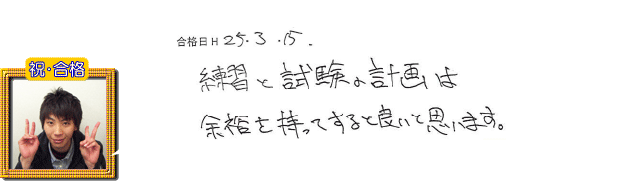 合格日H 25.3.15.
祝・合格
練習と試験の計画は
余裕を持ってすると良いと思います。